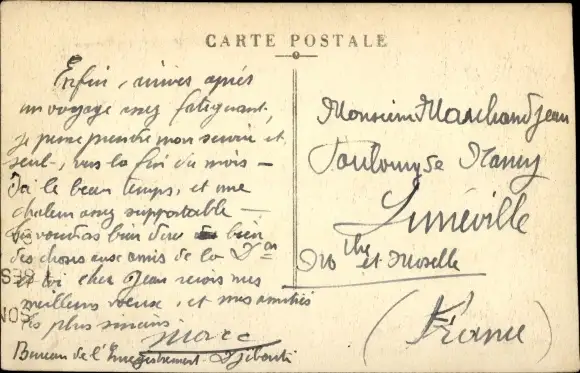 CARTE POSTALE
Enfin, arrivés après
un voyage assez fatigant,
je pense prendre mon service et
seul, vers la fin du mois —
Ici le beau temps, et une
chaleur assez supportable —
Tu voudras bien dire bien
des choses aux amis de la Don
et toi cher Jean reçois mes
meilleurs voeux, et mes amitiés
les plus sincères
Marc
Bureau de l'Enregistrement - Djibouti
Monsieur Marchand Jean
de Nancy
Lunéville
Mthe et Moselle
(France)